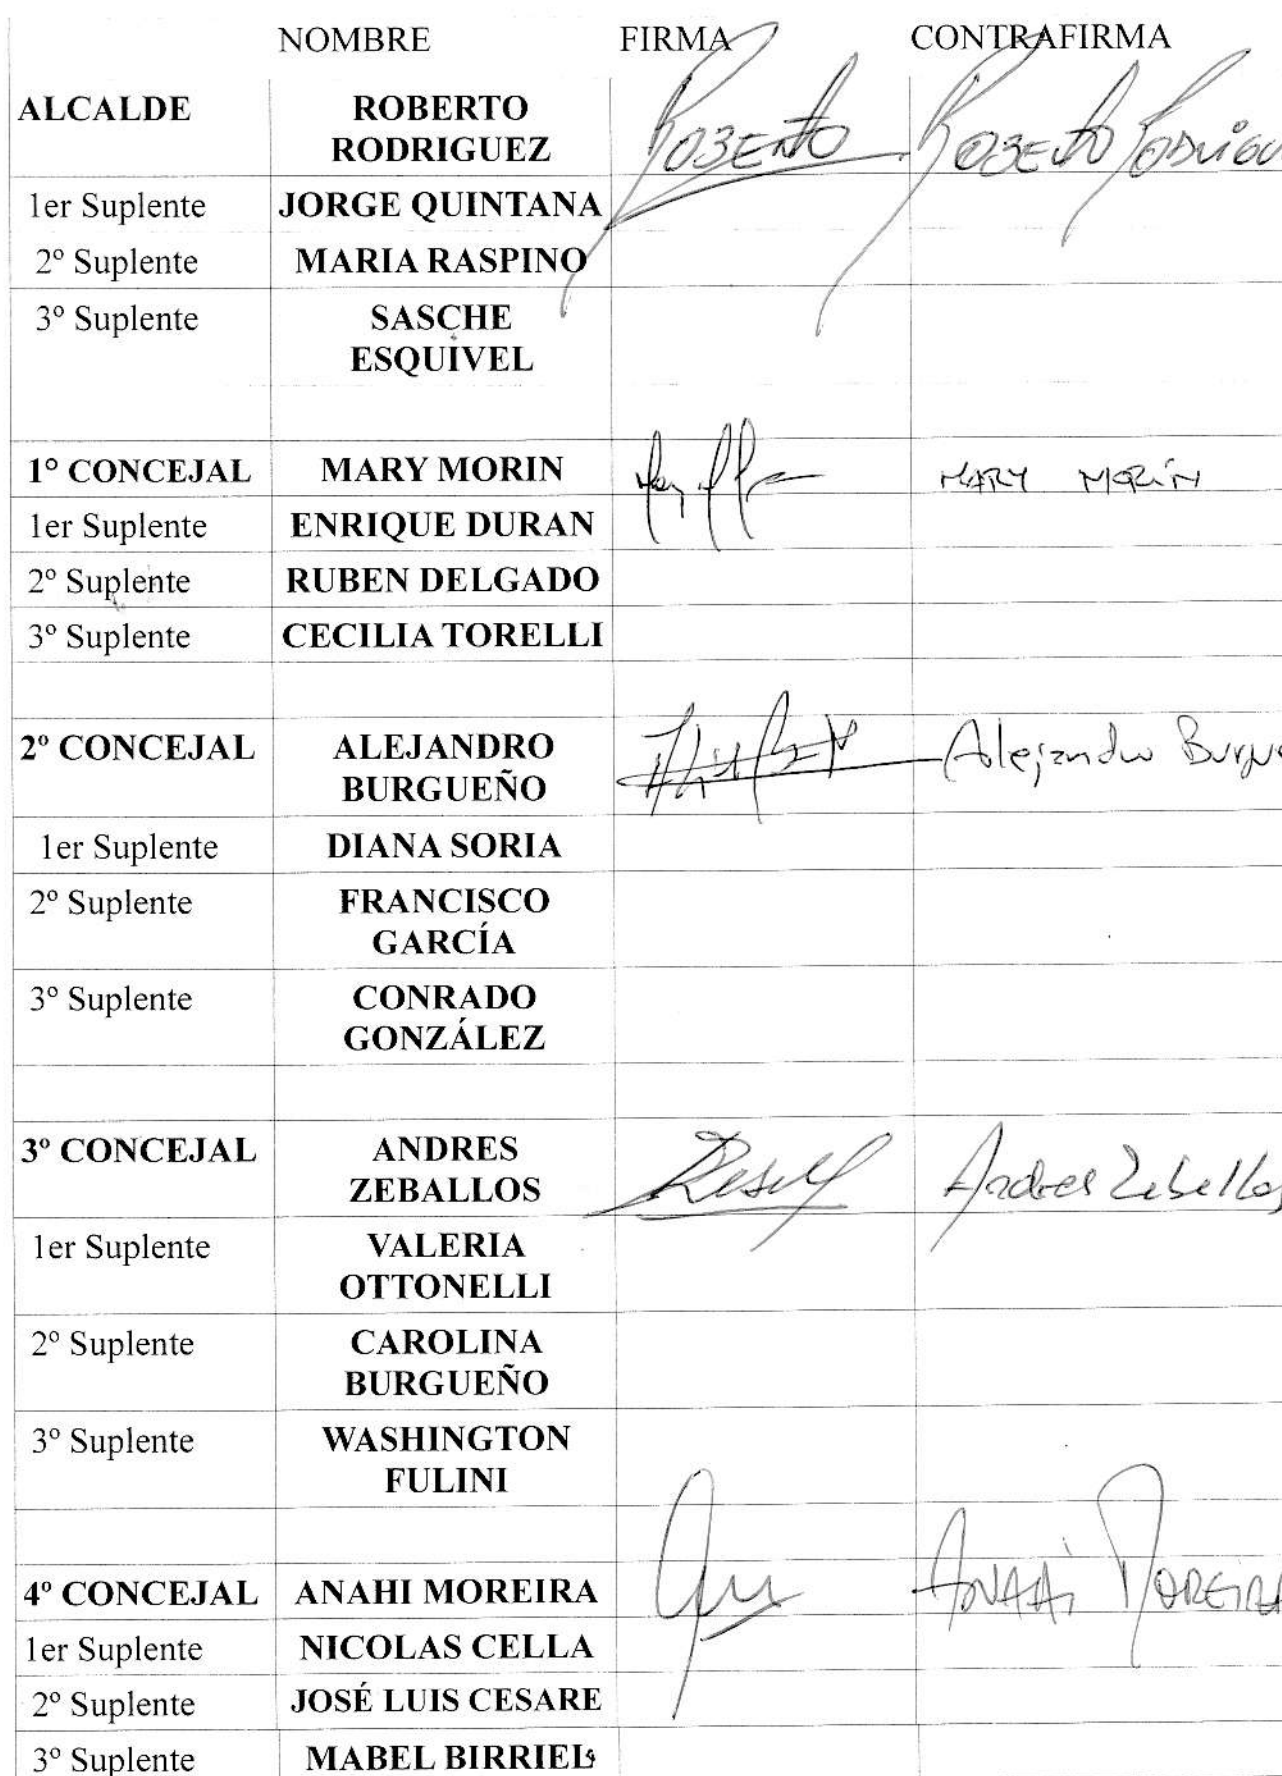 NOMBRE FIRMA CONTRAFIRMA
ALCALDE ROBERTO RODRIGUEZ ROBERTO ROBERTO
1er Suplente JORGE QUINTANA
2º Suplente MARIA RASPINO
3º Suplente SASCHE ESQUIVEL
1º CONCEJAL MARY MORIN MARY MORÍN
1er Suplente ENRIQUE DURAN
2º Suplente RUBEN DELGADO
3º Suplente CECILIA TORELLI
2º CONCEJAL ALEJANDRO BURGUEÑO Alejandro
1er Suplente DIANA SORIA
2º Suplente FRANCISCO GARCÍA
3º Suplente CONRADO GONZÁLEZ
3º CONCEJAL ANDRES ZEBALLOS Andres Zeballos
1er Suplente VALERIA OTTONELLI
2º Suplente CAROLINA BURGUEÑO
3º Suplente WASHINGTON FULINI
4º CONCEJAL ANAHI MOREIRA ANAHÍ MOREIRA
1er Suplente NICOLAS CELLA
2º Suplente JOSÉ LUIS CESARE
3º Suplente MABEL BIRRIEL